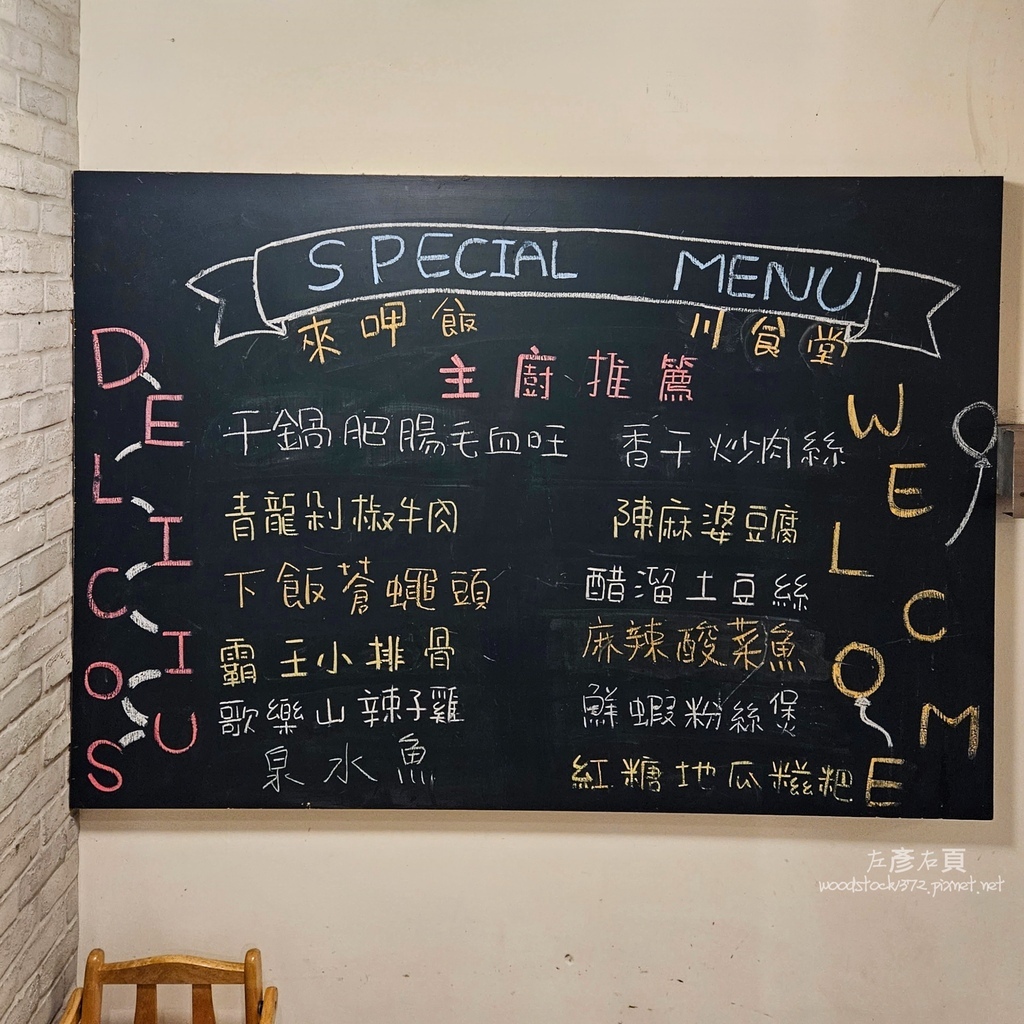 SPECIAL MENU
來呷飯 川食堂
主廚推薦
DELICIOUS
WELCOME
干鍋肥腸毛血旺 香干炒肉絲
青龍剁椒牛肉 陳麻婆豆腐
下飯蒼蠅頭 醋溜土豆絲
霸王小排骨 麻辣酸菜魚
歌樂山辣子雞 鮮蝦粉絲煲
泉水魚 紅糖地瓜糍粑
左彥右頁
woodstock372.pixnet.net